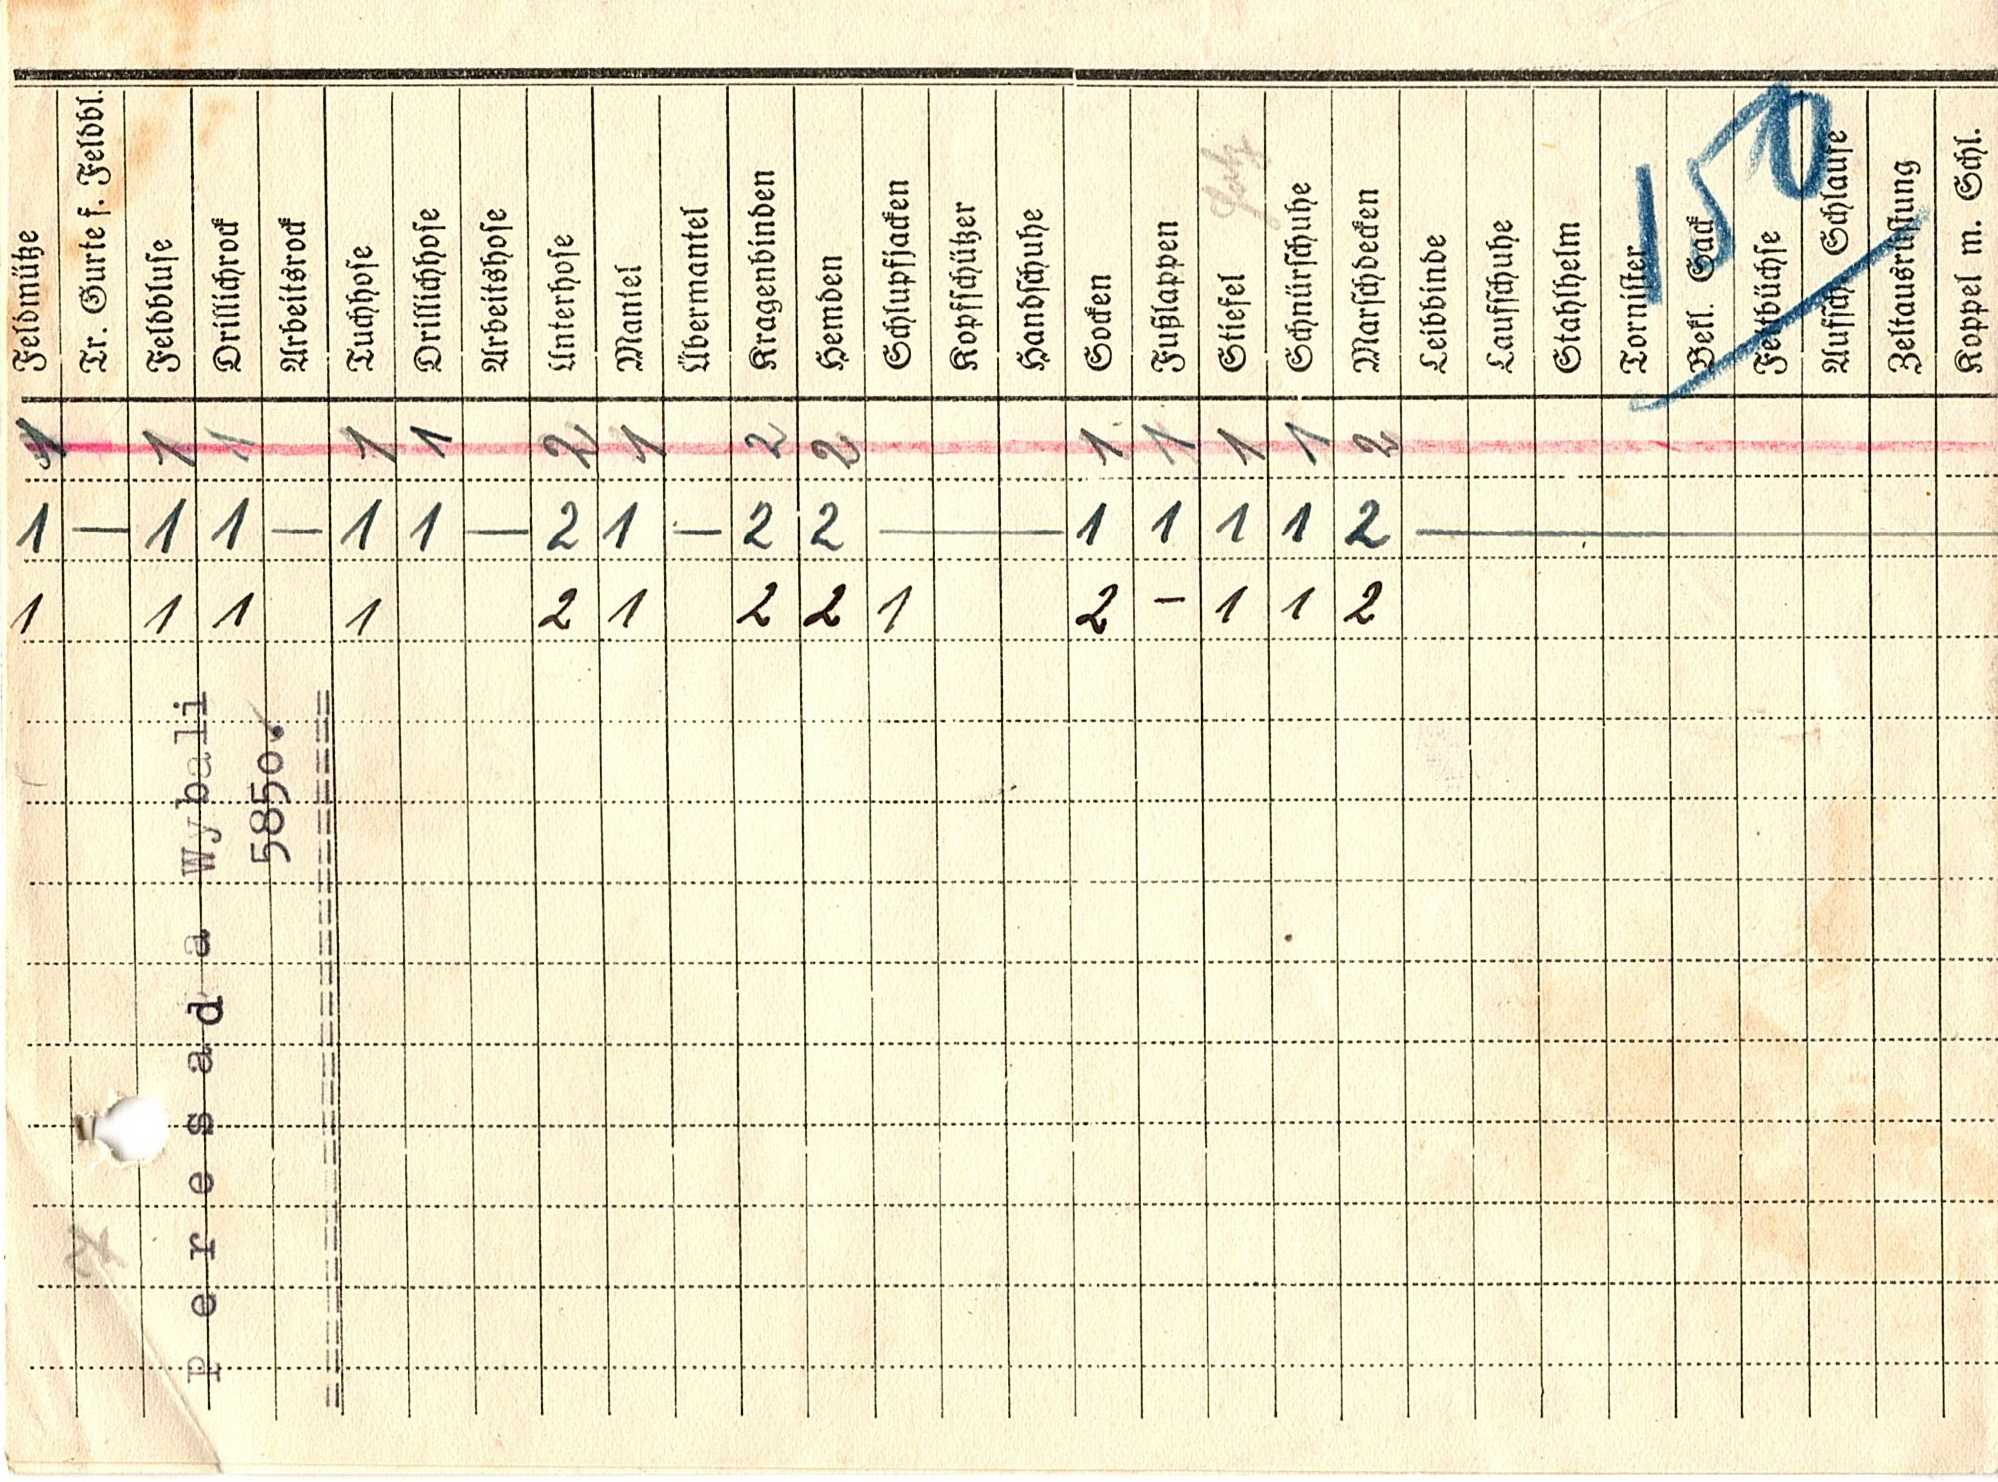 Feldmütze
Tr. Gurte f. Feldbl.
Feldbluse
Drillichrock
Arbeitsrock
Tuchhose
Drillichhose
Arbeitshose
Unterhose
Mantel
Übermantel
Kragenbinden
Hemden
Schlupfjacken
Kopfschützer
Handschuhe
Socken
Fußlappen
Stiefel
Schnürschuhe
Marschdecken
Leibbinde
Laufschuhe
Stahlhelm
Tornister
Bekl. Sack
Fettbüchse
Aufsch. Schlaufe
Zeltausrüstung
Koppel m. Schl.
150
1 1 1 1 1 2 1 2 2 1 1 1 1 2
1 — 1 1 — 1 1 — 2 1 — 2 2 — 1 1 1 1 2 —
1 1 1 1 2 1 2 2 1 2 – 1 1 2
P e r e s a d a Wybali
5850.